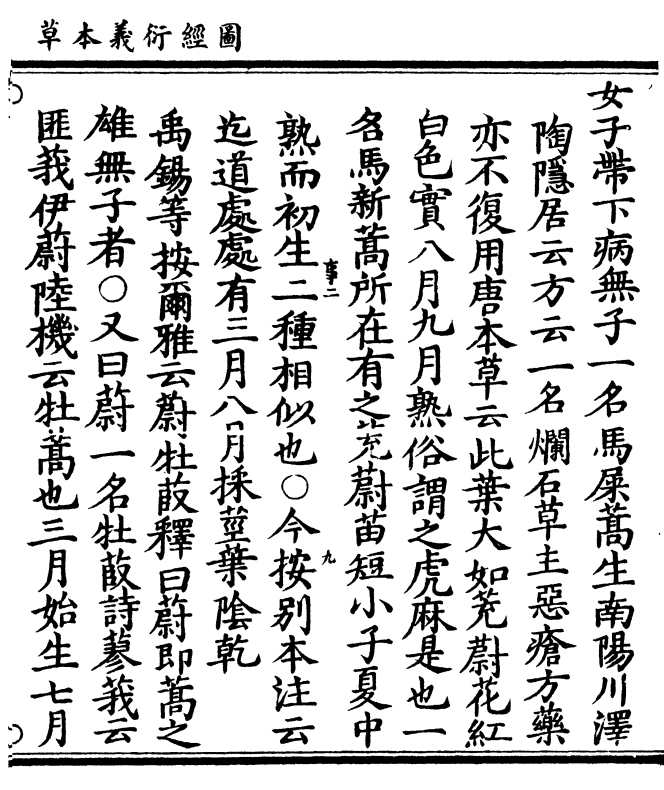 圖經衍義本草
女子帶下病無子一名馬屎蒿生南陽川澤
陶隱居云方云一名爛石草主惡瘡方藥
亦不復用唐本草云此葉大如茺蔚花紅
白色實八月九月熟俗謂之虎麻是也一
名馬新蒿所在有之茺蔚苗短小子夏中
熟而初生二種相似也○今按別本注云
事二
九
迄道處處有三月八月採莖葉陰乾
禹錫等按爾雅云蔚牡菣釋曰蔚即蒿之
雄無子者○又曰蔚一名牡菣詩蓼莪云
匪莪伊蔚陸機云牡蒿也三月始生七月